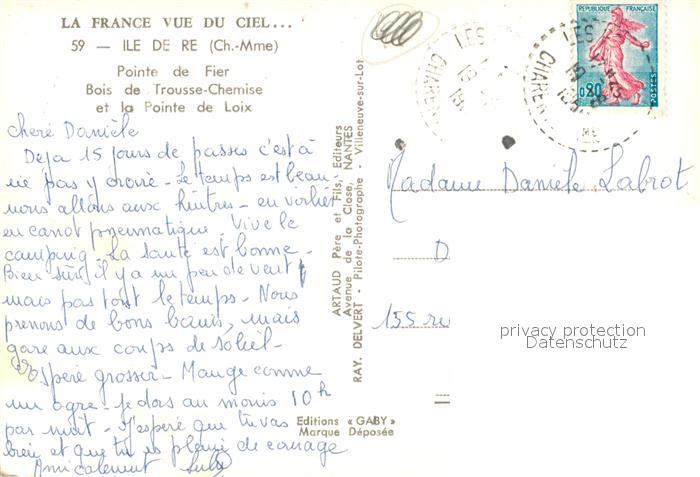 LA FRANCE VUE DU CIEL...
59 — ILE DE RE (Ch.-Mme)
Pointe de Fier
Bois de Trousse-Chemise
et la Pointe de Loix
cheré Danièle
Déja 15 jours de passes c'est à
ne pas y croire - Le temps est beau -
nous allons aux huitres - en
en canot pneumatique. Vive le
camping. La santé est bonne -
Bien sûr il y a un peu de vent
mais pas tout le temps - Nous
prenons de bons bains, mais
gare aux coups de soleil -
espère grossir - Mange comme
un ogre - Je dors au moins 10h
par nuit - J'espère que tu vas
bien et que tu es pleine de courage
Amicalement
ARTAUD Père et Fils, Editeurs
Avenue de la Close, NANTES
RAY. DELVERT - Pilote-Photographe - Villeneuve-sur-Lot
Editions « GABY »
Marque Déposée
REPUBLIQUE FRANÇAISE
0,20
POSTES
LES
CHARE
LES
CHAREN
Madame Danièle Labrot
D
155 ru
privacy protection
Datenschutz